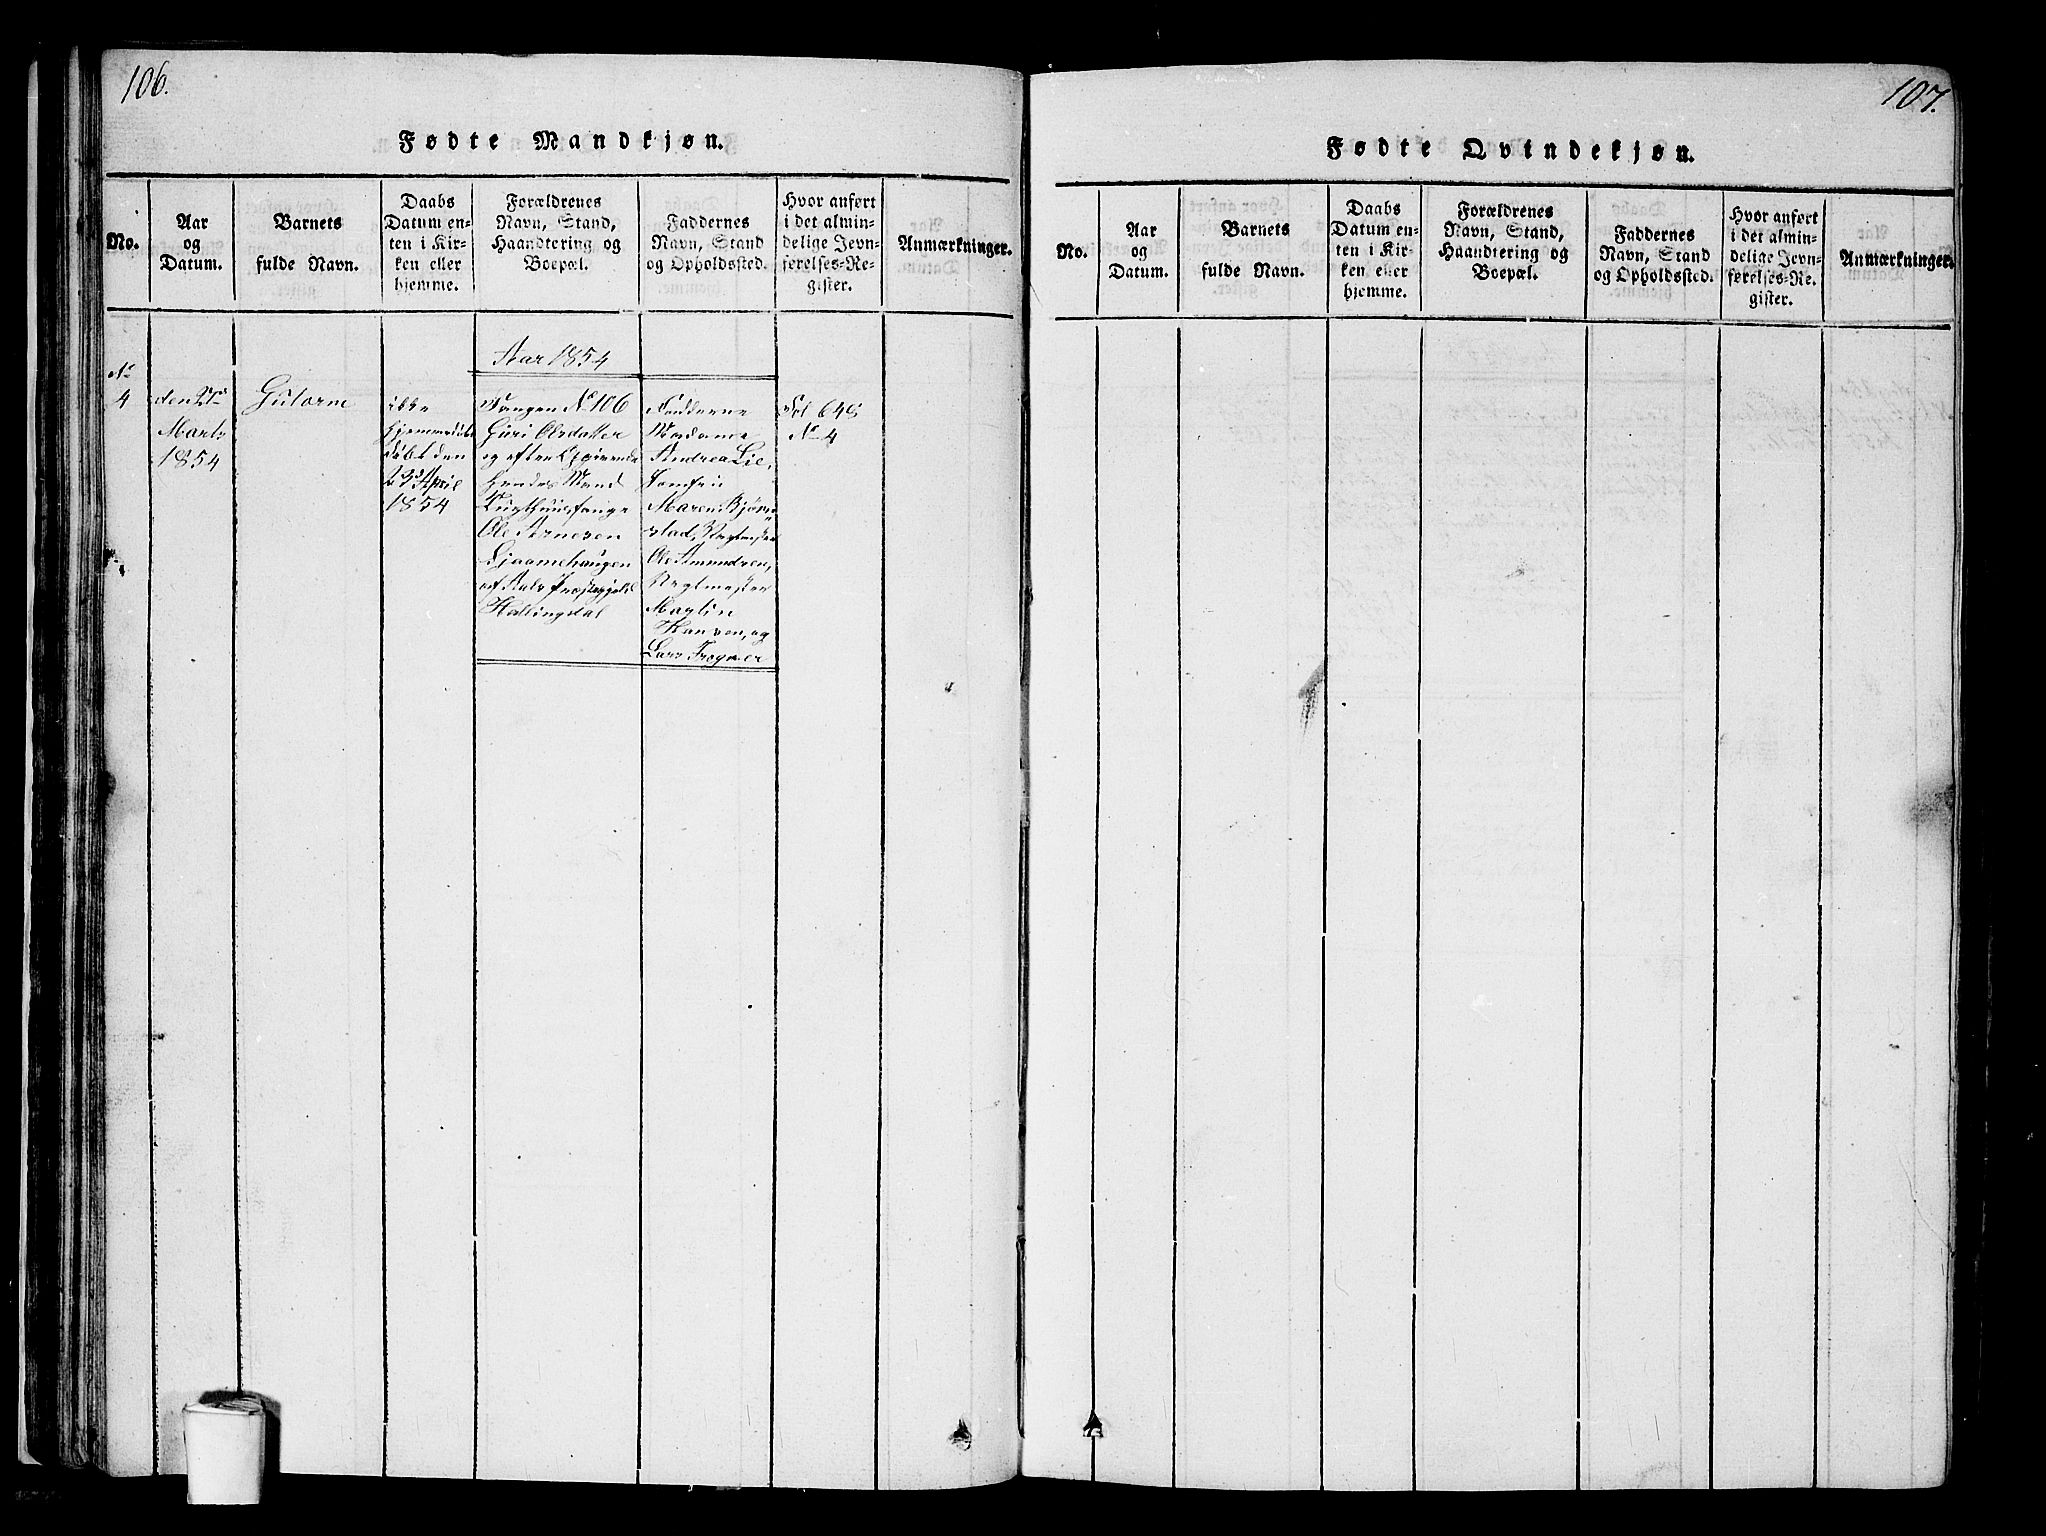 106.
Fødte Mandkjøn.
No.
Aar
og
Datum.
Barnets
fulde Navn.
Daabs
Datum en-
ten i Kir-
ken eller
hjemme.
Forældrenes
Navn, Stand,
Haandtering og
Boepæl.
Faddernes
Navn, Stand
og Opholdssted.
Hvor anført
i det almin-
delige Jevn-
førelses-Re-
gister.
Anmærkninger.
Aar 1854
No
4
den
Marts
1854
Gutorm
ikke
hjemmedøbt
døbt den
23d April
1854
Fangen No 106
Guri Olsdatter
og efter Opgivende
hendes Mand
Tugthuusfange
Ole Arnesen
Ljaamehaugen
af Aals Præstegjeld
Hallingdal
Fadderne
Madame
Andrea Lie,
Jomfru
Maren Bjørn-
stad, Vagtmester
Ole Amundsen,
Vagtmester
Martin
Hansen, og
Lars Frogner
Fol 648
No 4
107.
Fødte Qvindekjøn.
No.
Aar
og
Datum.
Barnets
fulde Navn.
Daabs
Datum en-
ten i Kir-
ken eller
hjemme.
Forældrenes
Navn, Stand,
Haandtering og
Boepæl.
Faddernes
Navn, Stand
og Opholdssted.
Hvor anført
i det almin-
delige Jevn-
førelses-Re-
gister.
Anmærkninger.